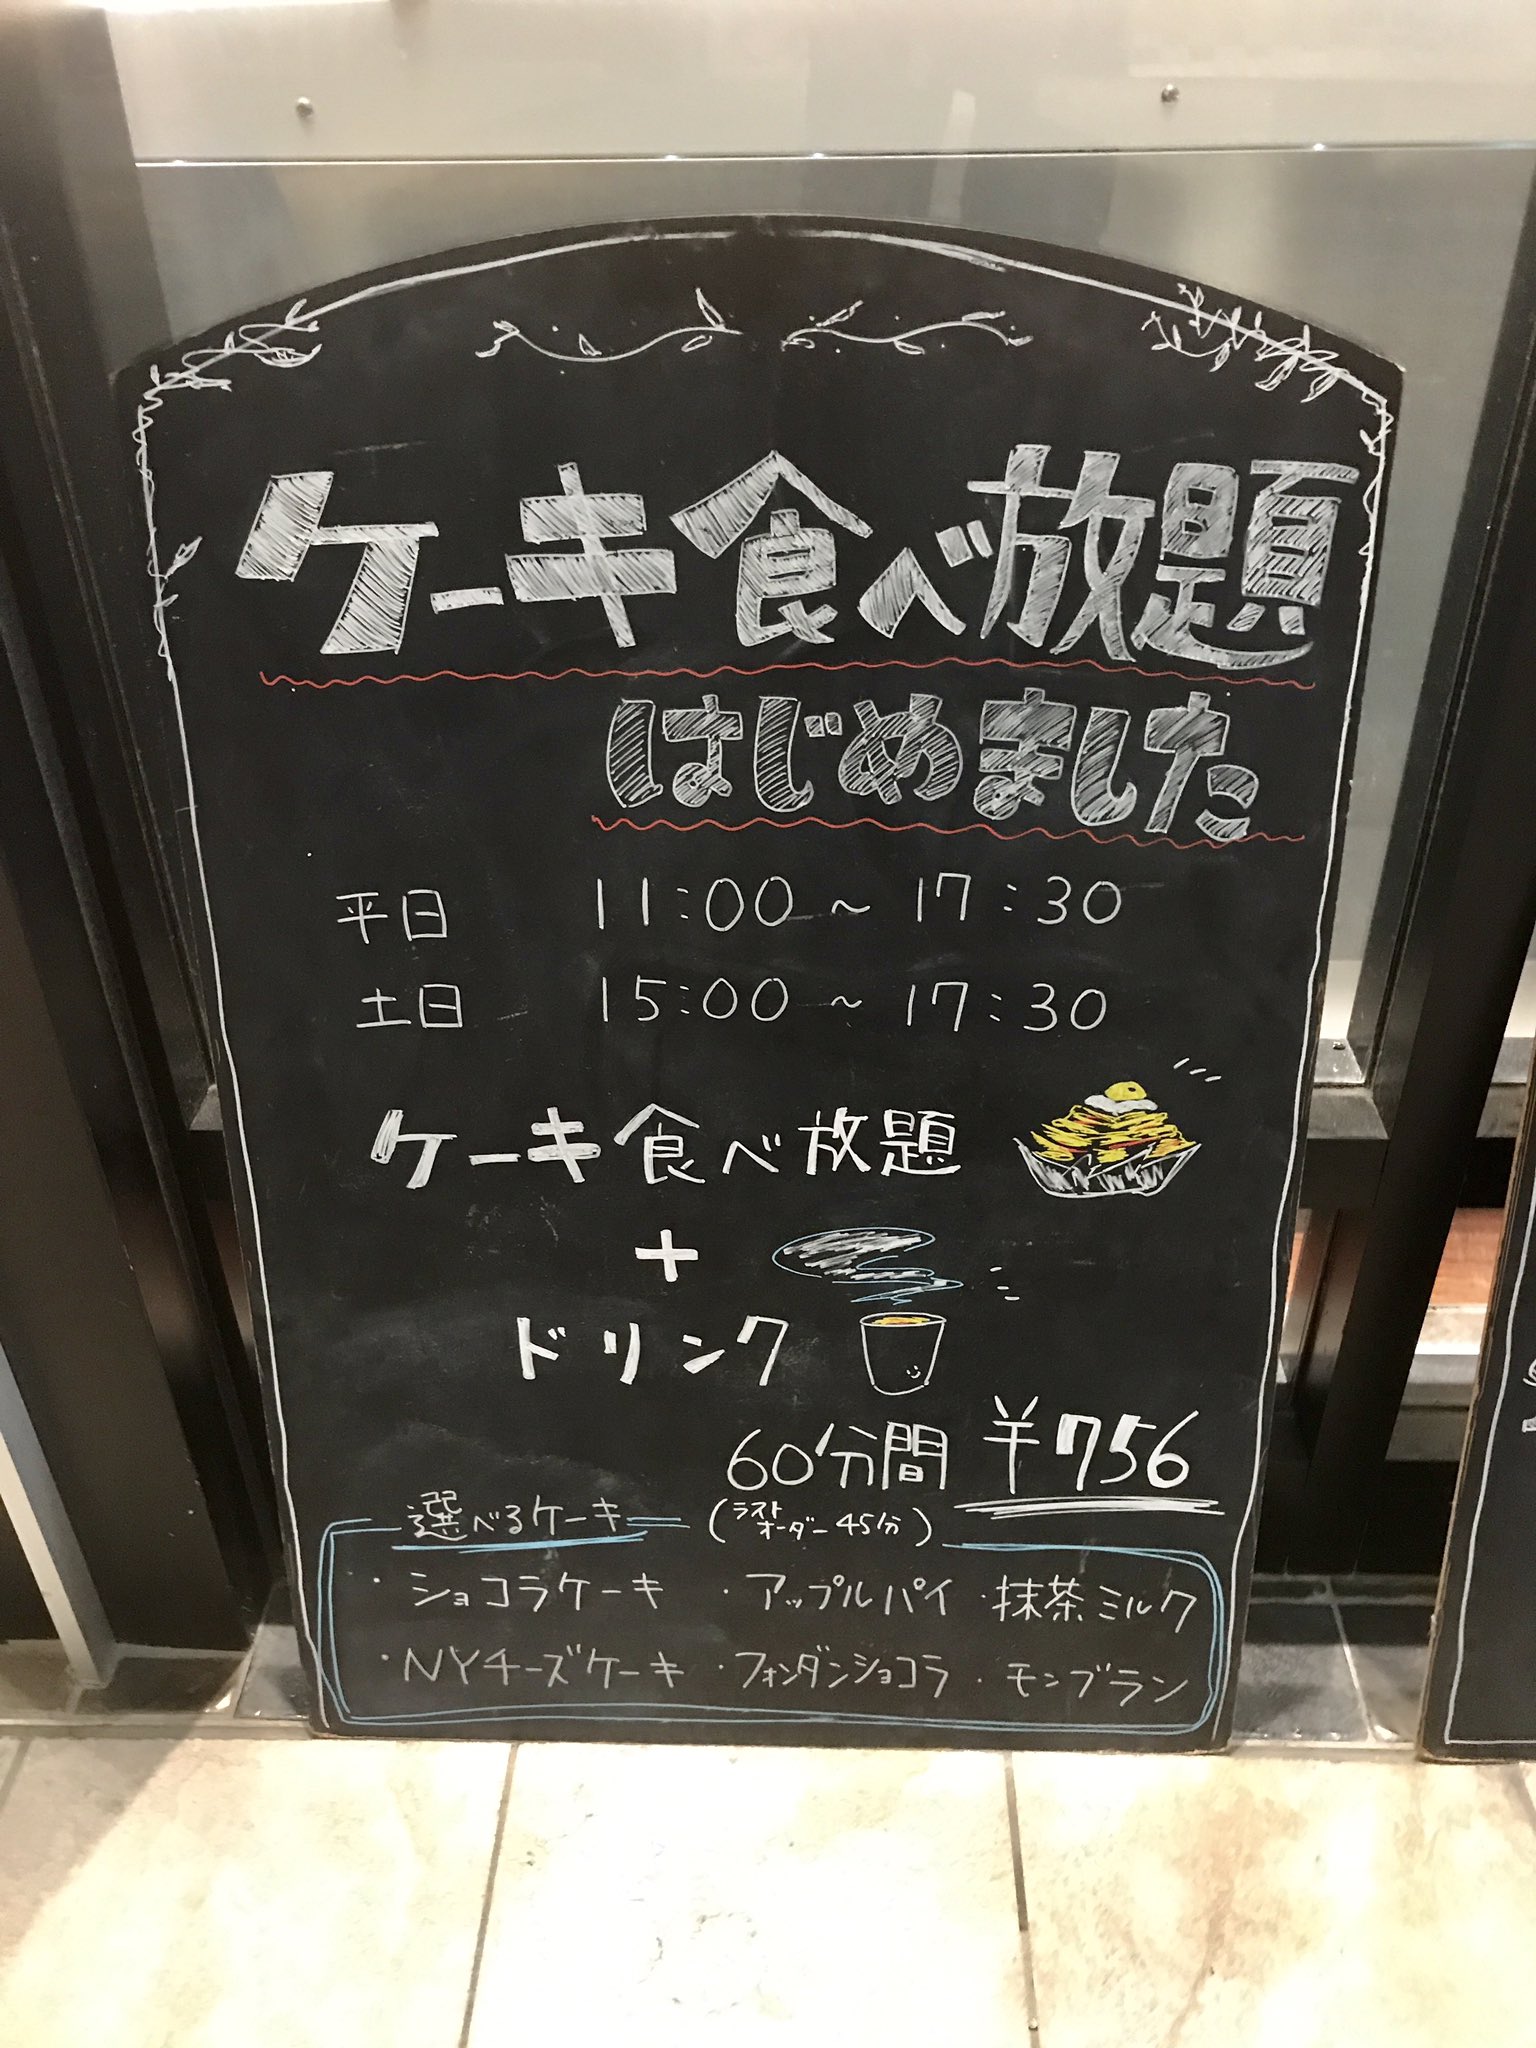 ケーキ食べ放題
はじめました
平日 11:00～17:30
土日 15:00～17:30
ケーキ食べ放題
+
ドリンク
60分間 ¥756
選べるケーキ (ラストオーダー45分)
・ショコラケーキ ・アップルパイ ・抹茶ミルク
・NYチーズケーキ ・フォンダンショコラ ・モンブラン